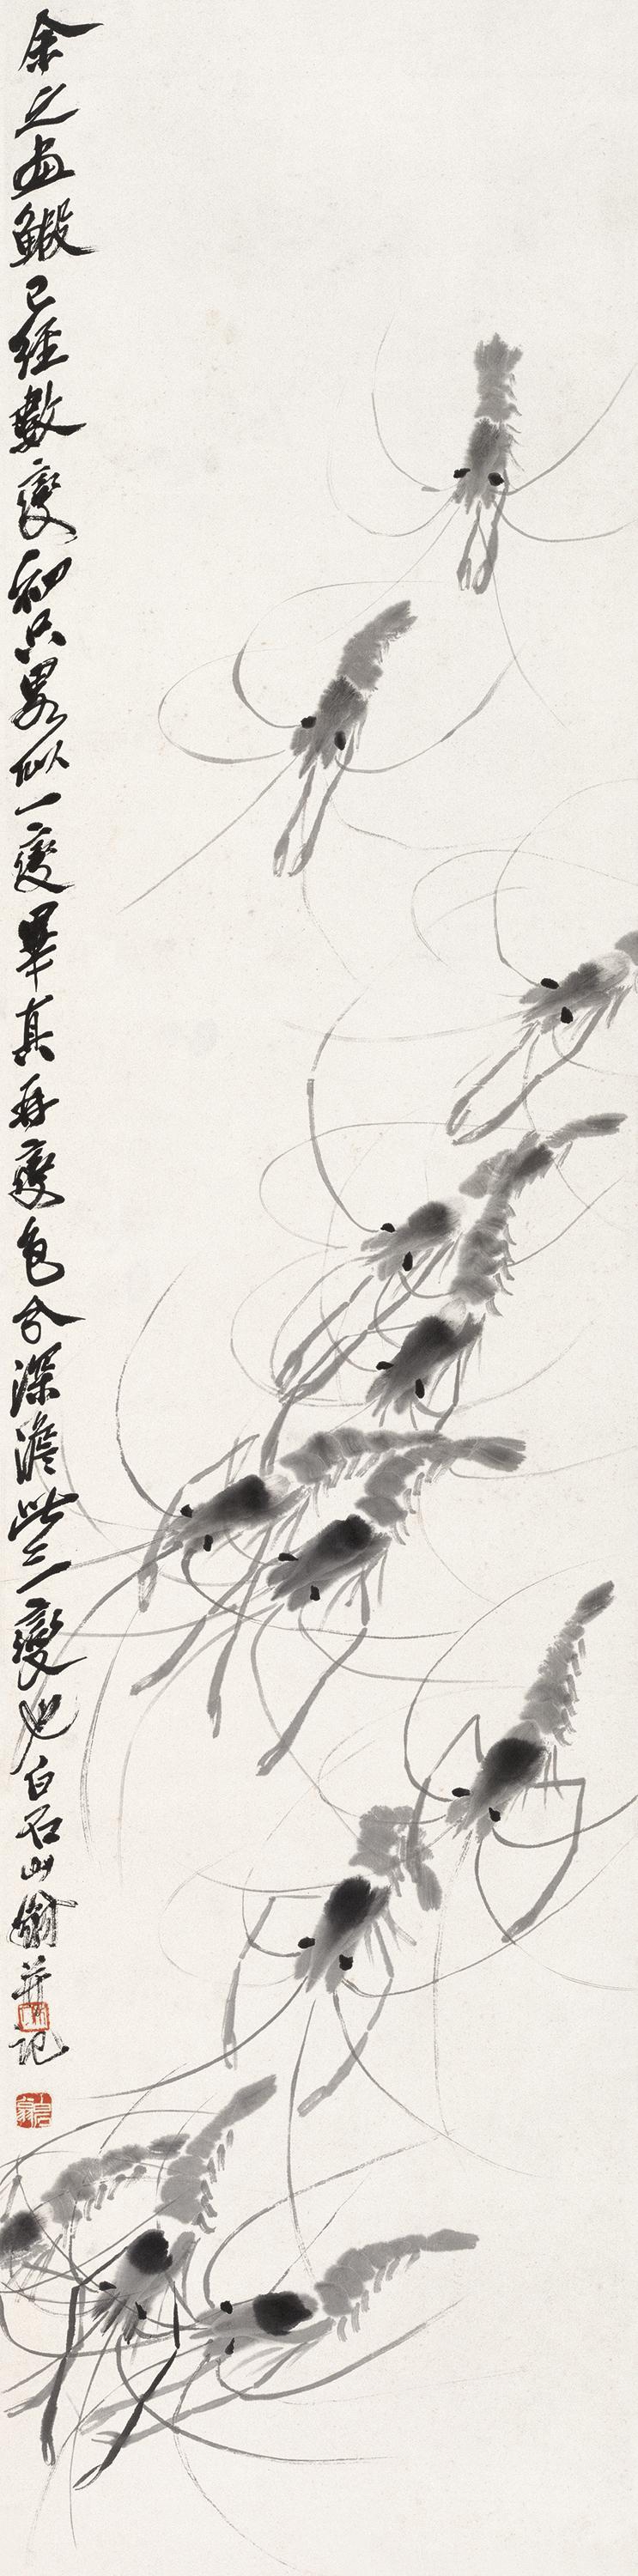 余之画鰕已經數變初只畧似一變畢真再變色分深澹此三變也白石山翁并記